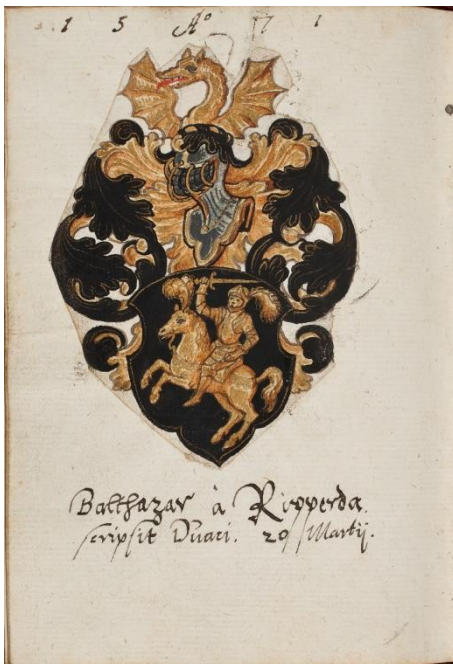 1 5 Aº 7 1
Balthazar à Ripperda.
scripsit Duaci. 20 Martij.